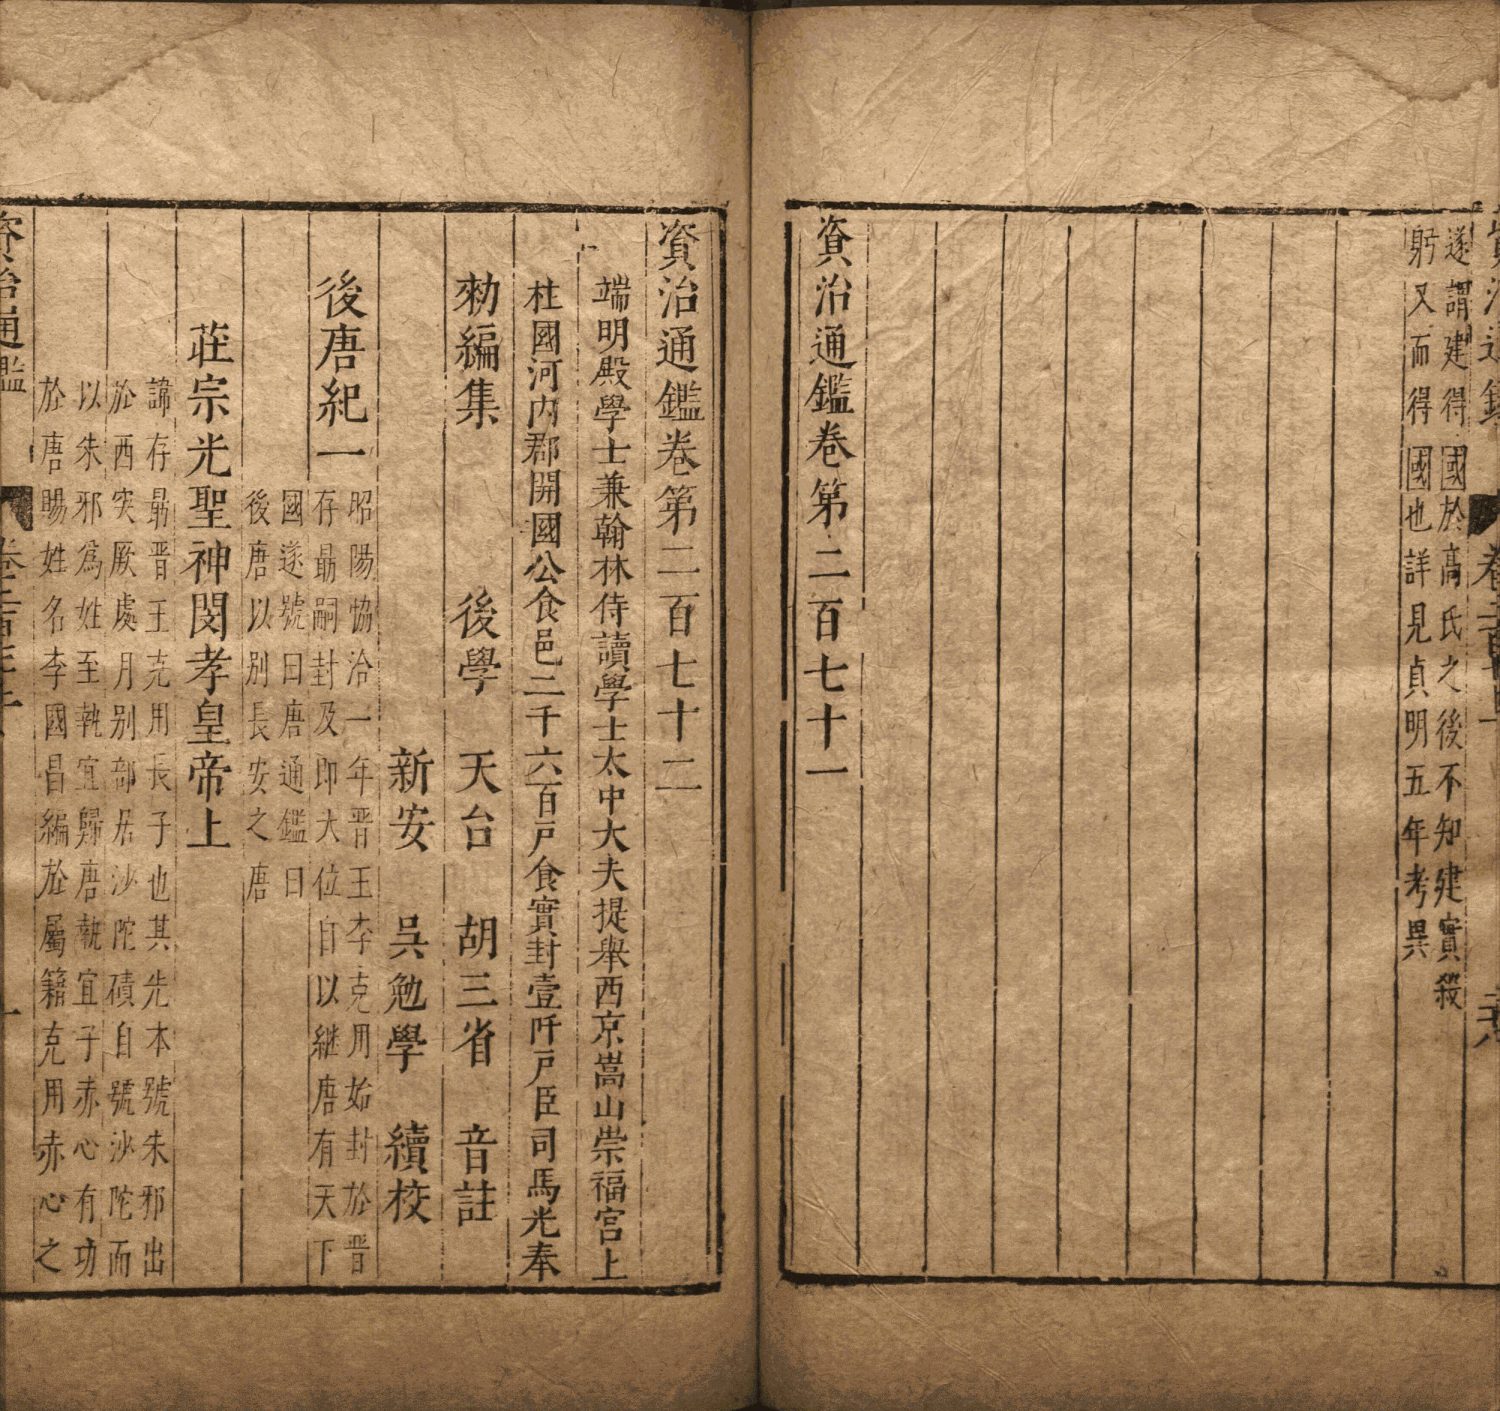 遂謂建得國於高氏之後不知建實殺
躬乂而得國也詳見貞明五年考異
資治通鑑卷第二百七十一
資治通鑑卷第二百七十二
端明殿學士兼翰林侍讀學士太中大夫提舉西京嵩山崇福宮上
柱國河內郡開國公食邑二千六百戶食實封壹阡戶臣司馬光奉
勑編集 後學 天台 胡三省 音註
新安 吳勉學 續校
後唐紀一
昭陽協洽一年晋王李克用始封於晋
存勗嗣封及即大位自以継唐有天下
國遂號曰唐通鑑曰
後唐以別長安之唐
莊宗光聖神閔孝皇帝上
諱存勗晋王克用長子也其先本號朱邪出
於西突厥處月別部居沙陀磧自號沙陀而
以朱邪爲姓至執宜歸唐執宜子赤心有功
於唐賜姓名李國昌編於屬籍克用赤心之
資治通鑑